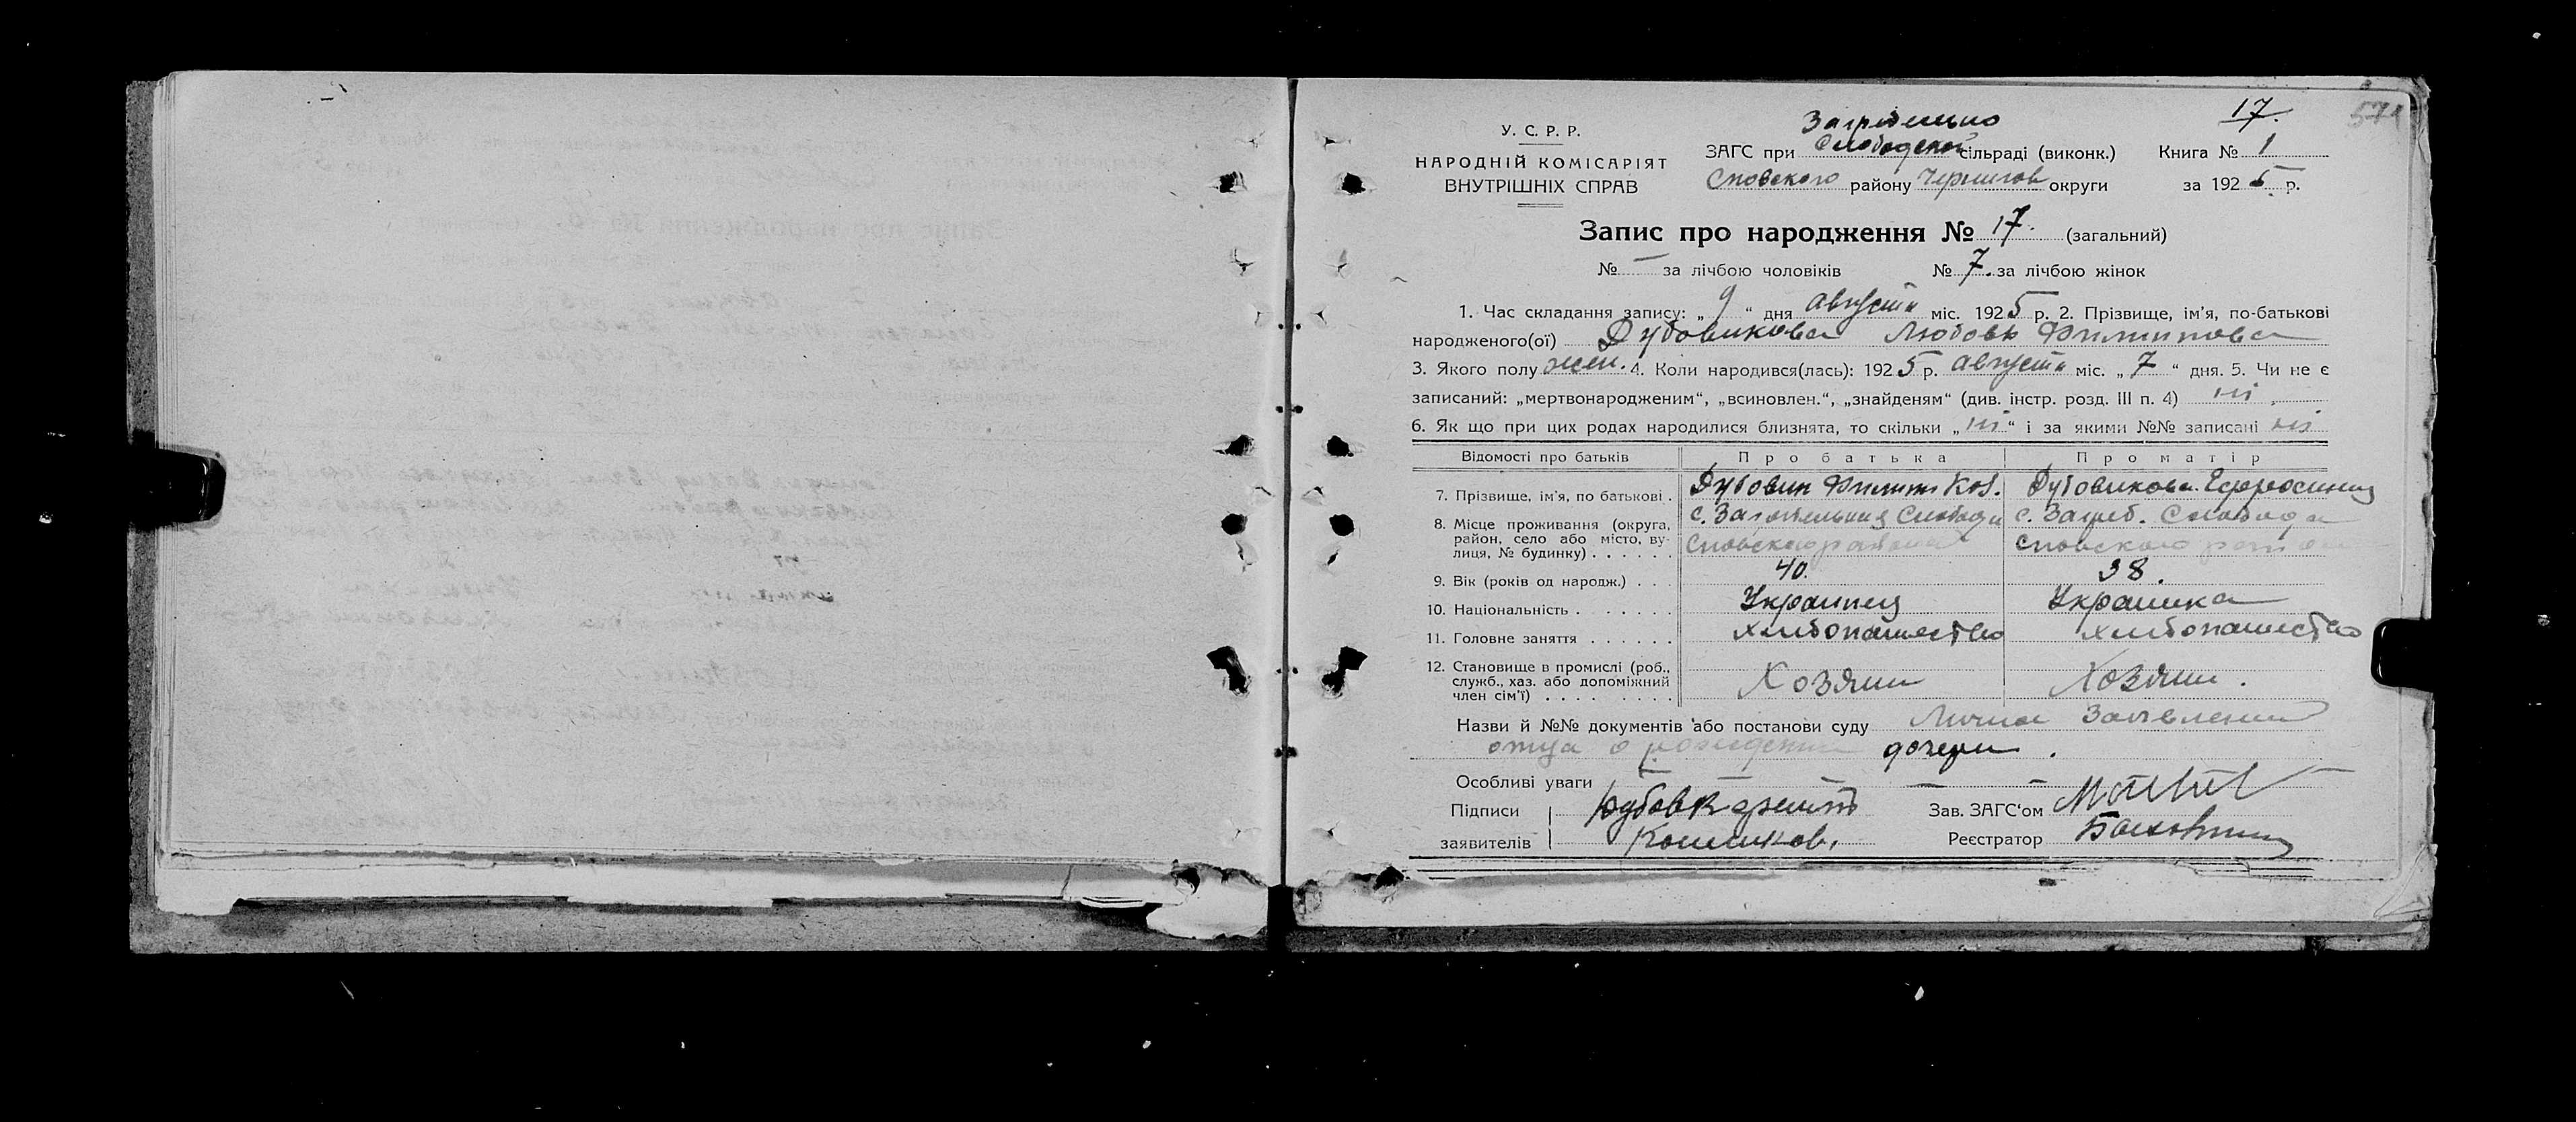 17.
571
У. С. Р. Р.
НАРОДНІЙ КОМІСАРІЯТ
ВНУТРІШНІХ СПРАВ
Загребельно
ЗАГС при Слободской сільраді (виконк.) Книга № 1
Сновского району Чернигов округи за 1925 р.
Запис про народження № 17. (загальний)
№ — за лічбою чоловіків № 7. за лічбою жінок
1. Час складання запису: „ 9 “ дня августа міс. 1925 р. 2. Прізвище, ім'я, по-батькові
народженого(ої) Дубовикова Любовь Филипова
3. Якого полу жен. 4. Коли народився(лась): 1925 р. августа міс. „ 7 “ дня. 5. Чи не є
записаний: „мертвонародженим“, „всиновлен.“, „знайденям“ (див. інстр. розд. III п. 4) ні
6. Як що при цих родах народилися близнята, то скільки „ ні “ і за якими №№ записані ні
Відомості про батьків Про батька Про матір
7. Прізвище, ім'я, по батькові . Дубовик Филип Дубовикова Ефросиния
8. Місце проживання (округа, район, село або місто, вулиця, № будинку) . . . . . .
с. Загребельная Слобода с. Загреб. Слобода
Сновского района Сновского района
9. Вік (років од народж.) . . . 40. 38.
10. Національність . . . . . . . Украинец Украинка
11. Головне заняття . . . . . . хлибопашество хлибопашество
12. Становище в промислі (роб., служб., хаз. або допоміжний член сім'ї) . . . . . . . . .
Хозяин Хозяин.
Назви й №№ документів або постанови суду Личное Заявление
отца о рождении дочери.
Особливі уваги — — — — —
Підписи Зав. ЗАГС'ом
заявителів Реєстратор